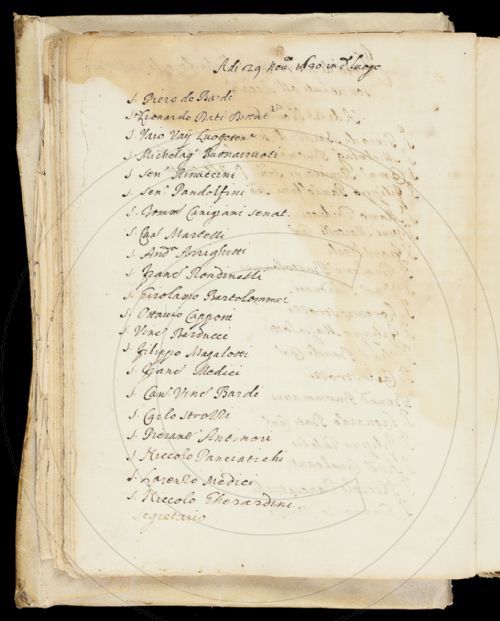 Adi 29 Nou.e 1630 in d.o luogo
S. Piero de Bardi
S. Lionardo Dati
S. Vaio Vaj Luogoten.e
S. Michelag.o Buonarruoti
S. Sen.r Rinuccini
S. Sen.r Pandolfini
S. Tomm.o Canigiani Senat.
S. Can. Martelli
S. And.a Arrighetti
S. Franc. Rondinelli
S. Girolamo Bartolommei
S. Ottauio Capponi
S. Vinc. Barducci
S. Filippo Magalotti
S. Franc. Medici
S. Can. Vinc. Bardi
S. Carlo Strozzi
S. Pierant. Antinori
S. Niccolo Panciatichi
S. Lorenzo Medici
S. Niccolo Gherardini
Segretario